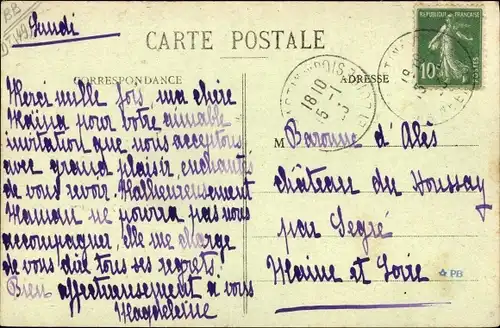 Lundi
CARTE POSTALE
CORRESPONDANCE
ADRESSE
REPUBLIQUE FRANÇAISE
10c
POSTES
18 10
5 -1
-3
Merci mille fois, ma chère
pour votre aimable
invitation que nous acceptons
avec grand plaisir, enchantés
de vous revoir. Malheureusement
Maman ne pourra pas nous
accompagner, elle me charge
de vous dire tous ses regrets.
Bien affectueusement à vous
Magdeleine
M Baronne d'Alès
château du Houssay
par Segré
Maine et Loire
PB